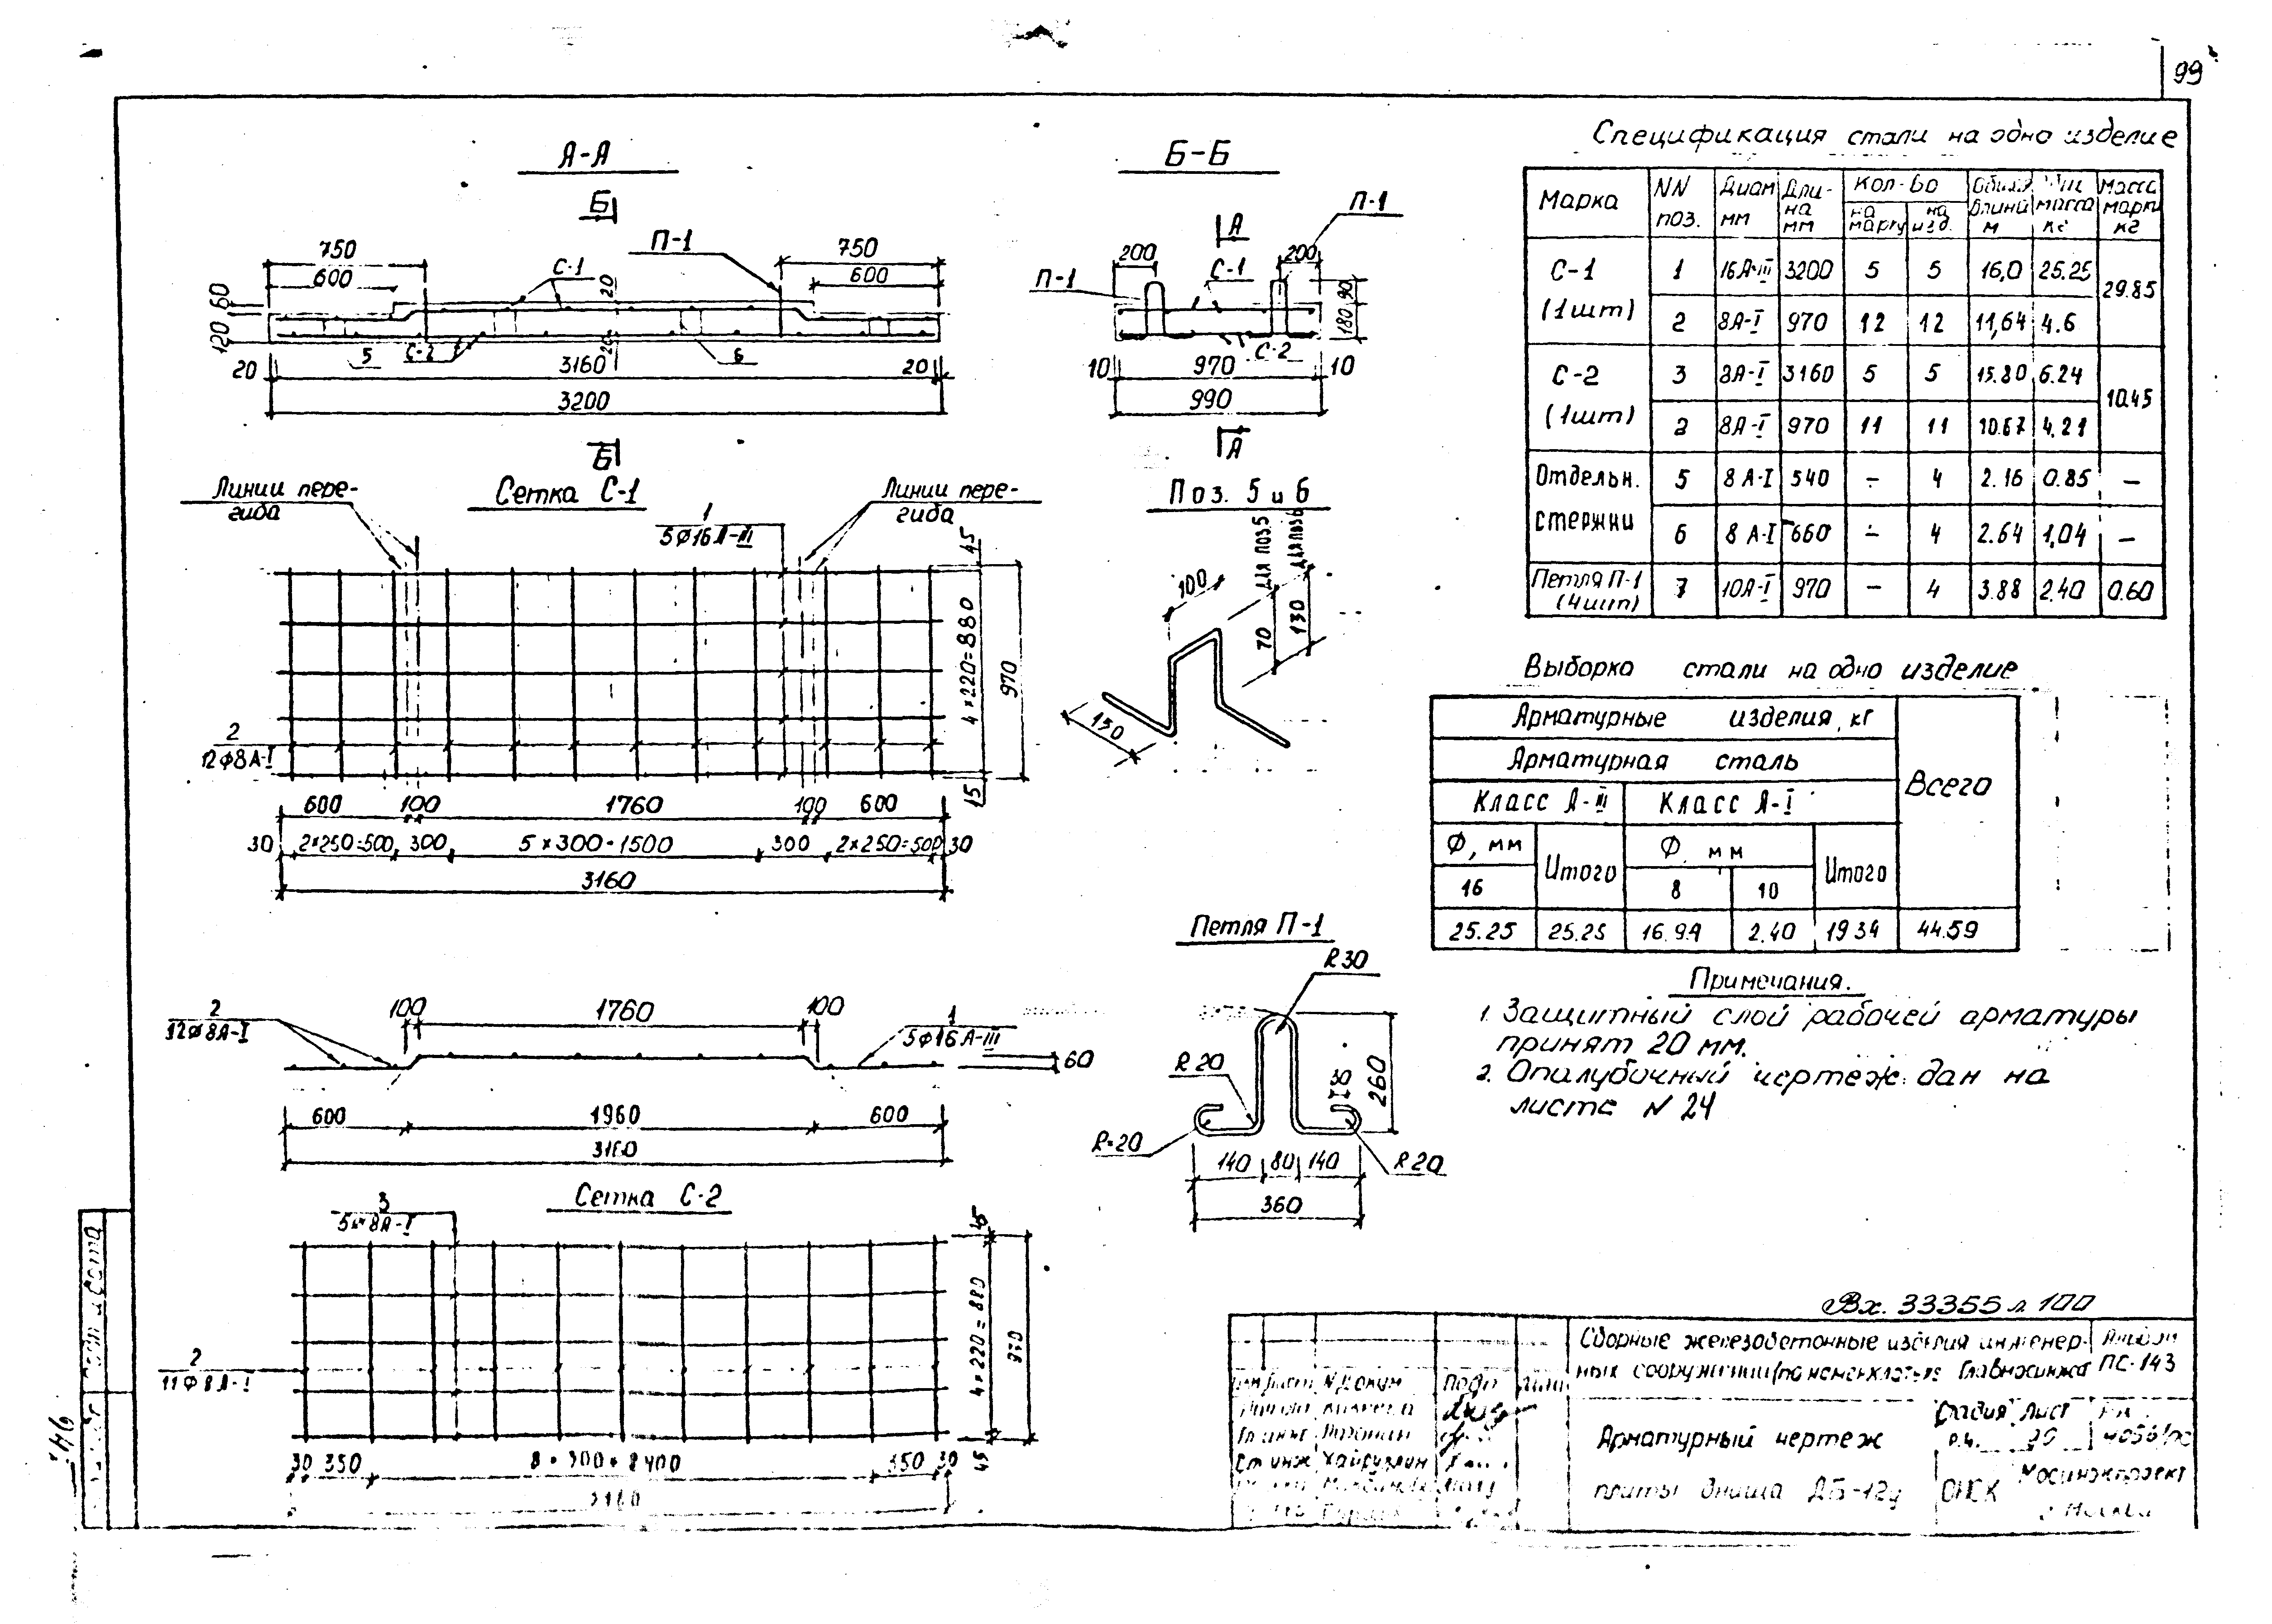 99
А-А
Б
750
600
П-1
С-1
20
750
600
60
120
5
С-2
20
6
20
3160
20
3200
Б
Б-Б
А
П-1
200
С-1
200
П-1
90
180
С-2
10
970
10
990
А
Линии пере-
гиба
Сетка С-1
1
5Ф16А-III
Линии пере-
гиба
45
4×220=880
970
45
2
12Ф8А-I
600
100
1760
100
600
30
2×250=500
300
5×300=1500
300
2×250=500
30
3160
Поз. 5 и 6
для поз.5
для поз6
100
70
130
150
2
12Ф8А-I
100
1760
100
1
5Ф16А-III
60
600
1960
600
3160
Петля П-1
R30
R20
30
260
R=20
R20
140
80
140
360
Сетка С-2
3
5Ф8А-I
45
4×220=880
970
45
2
11Ф8А-I
30
350
8×300=2400
350
30
3160
Спецификация стали на одно изделие
Марка
NN
поз.
Диам
мм
Дли-
на
мм
Кол-во
на
марку
на
изд.
Общая
длина
м
масса
кг
Масса
марки
кг
С-1
(1шт)
1 16А-III 3200 5 5 16,0 25.25
29.85
2 8А-I 970 12 12 11,64 4.6
С-2
(1шт)
3 8А-I 3160 5 5 15.80 6.24
10.45
2 8А-I 970 11 11 10.67 4.21
Отдельн.
стержни
5 8А-I 540 — 4 2.16 0.85 —
6 8А-I 660 — 4 2.64 1,04 —
Петля П-1
(4шт)
7 10А-I 970 — 4 3.88 2.40 0.60
Выборка стали на одно изделие
Арматурные изделия, кг
Арматурная сталь
Всего
Класс А-III
Класс А-I
Ф, мм
Итого
Ф, мм
Итого
16
8
10
25.25 25.25 16.94 2.40 19.34 44.59
Примечания.
1. Защитный слой рабочей арматуры
принят 20 мм.
2. Опалубочный чертеж дан на
листе N 24
Вх. 33355 л 100
Сборные железобетонные изделия инженер-
ных сооружений (по номенклатуре Главмосинжа
Альбом
ПС-143
N докум
Подп
Арматурный чертеж
плиты днища ДБ-12у
Стадия
Лист
Р.Ч.
ОНСК
Мосинжпроект
г. Москва
Ст инж
Хайруллин